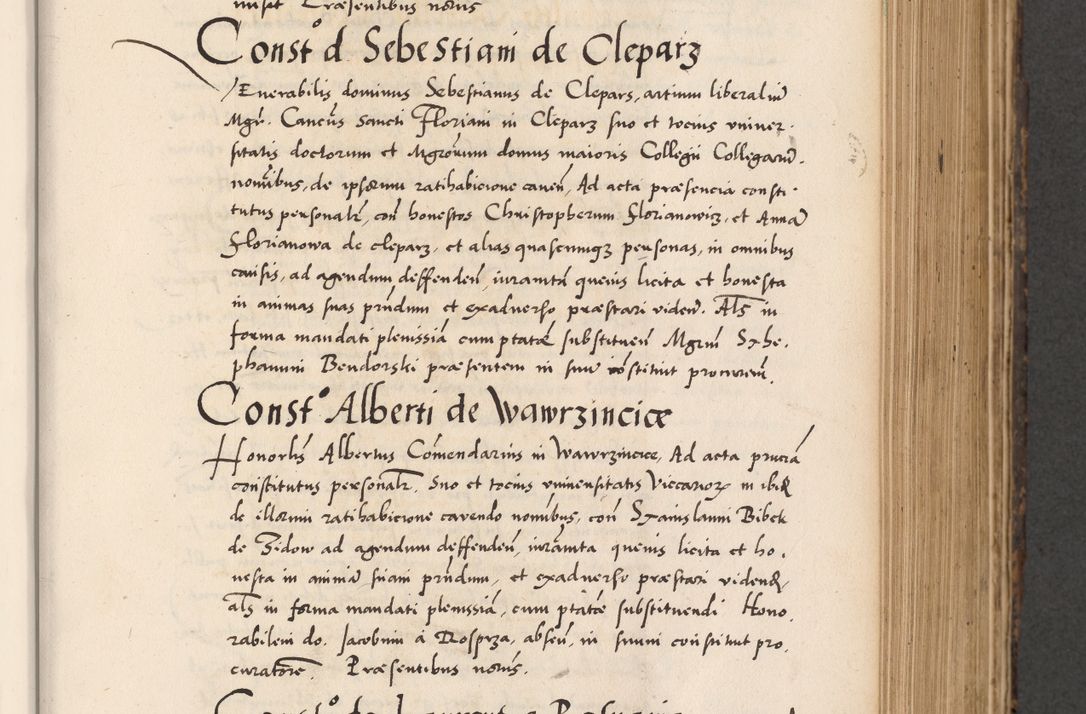 Præsentibus notis
Const° d Sebestiani de Cleparz
Venerabilis dominus Sebestianus de Clepars, artium liberaliū
Mgr̄. Canc̄us Sancti Floriani in Cleparz suo et tocius univer-
sitatis doctorum et Mgror̄um domus maioris Collegii Collegarū.
nom̄ibus, de ipsorum ratihabicione caven̄, Ad acta præsencia consti-
tutus personalr̄, con̄ honestos Christopherum Florianowiz, et Annā
Florianowa de cleparz, et alias quascumqȝ personas, in omnibus
causis, ad agendum deffenden̄, iuramtā quevis licita et honesta
in animas suas prn̄dum et exadverso præstari viden̄. Als̄ in
forma mandati plenissiā cum ptate substituen̄ Mgrm̄ Sthe-
phanum Bendorski præsentem in suū constituit procurem̄.
Const° Alberti de Wawrzincice
Honorlis̄ Albertus Com̄endarius in Wawrzincice, Ad acta prnciā
constitutus personalr̄. Suo et tocius universitatis Viccarioꝝ in ibiđ
de illorum ratihabicione cavendo nom̄ibus, con̄ Stanislaum Bibek
de Zidow ad agendum deffenden̄, iuram̄ta quevis licita et ho-
nesta in animā suam prn̄dum, et exadverso præstari viden̄,
als̄ in forma mandati plenissiā, cum ptate substituendi Hono-
rabilem do. Jacobum a Rosprza, absen̄, in suum constituit pro-
curatore͞. Præsentibus notis.